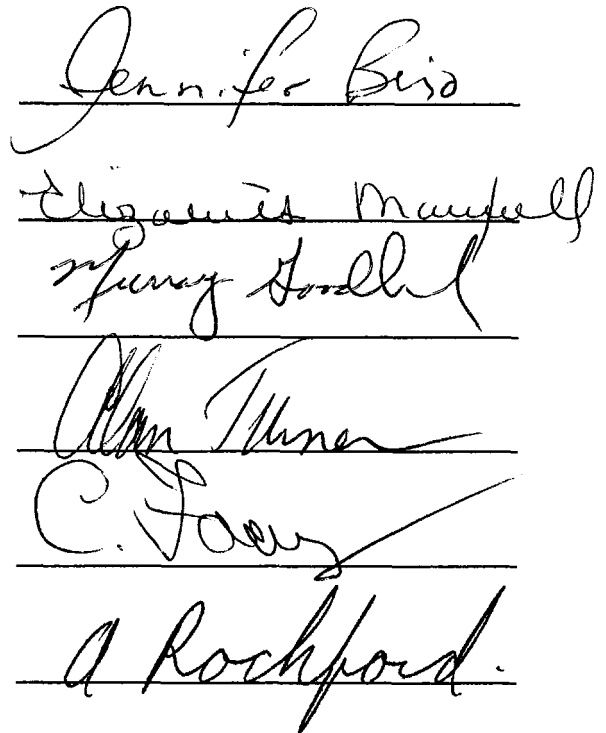 Jennifer Biso
Elizabeth Maxwell
Murray
Alan Turner
C.
A Rochford.